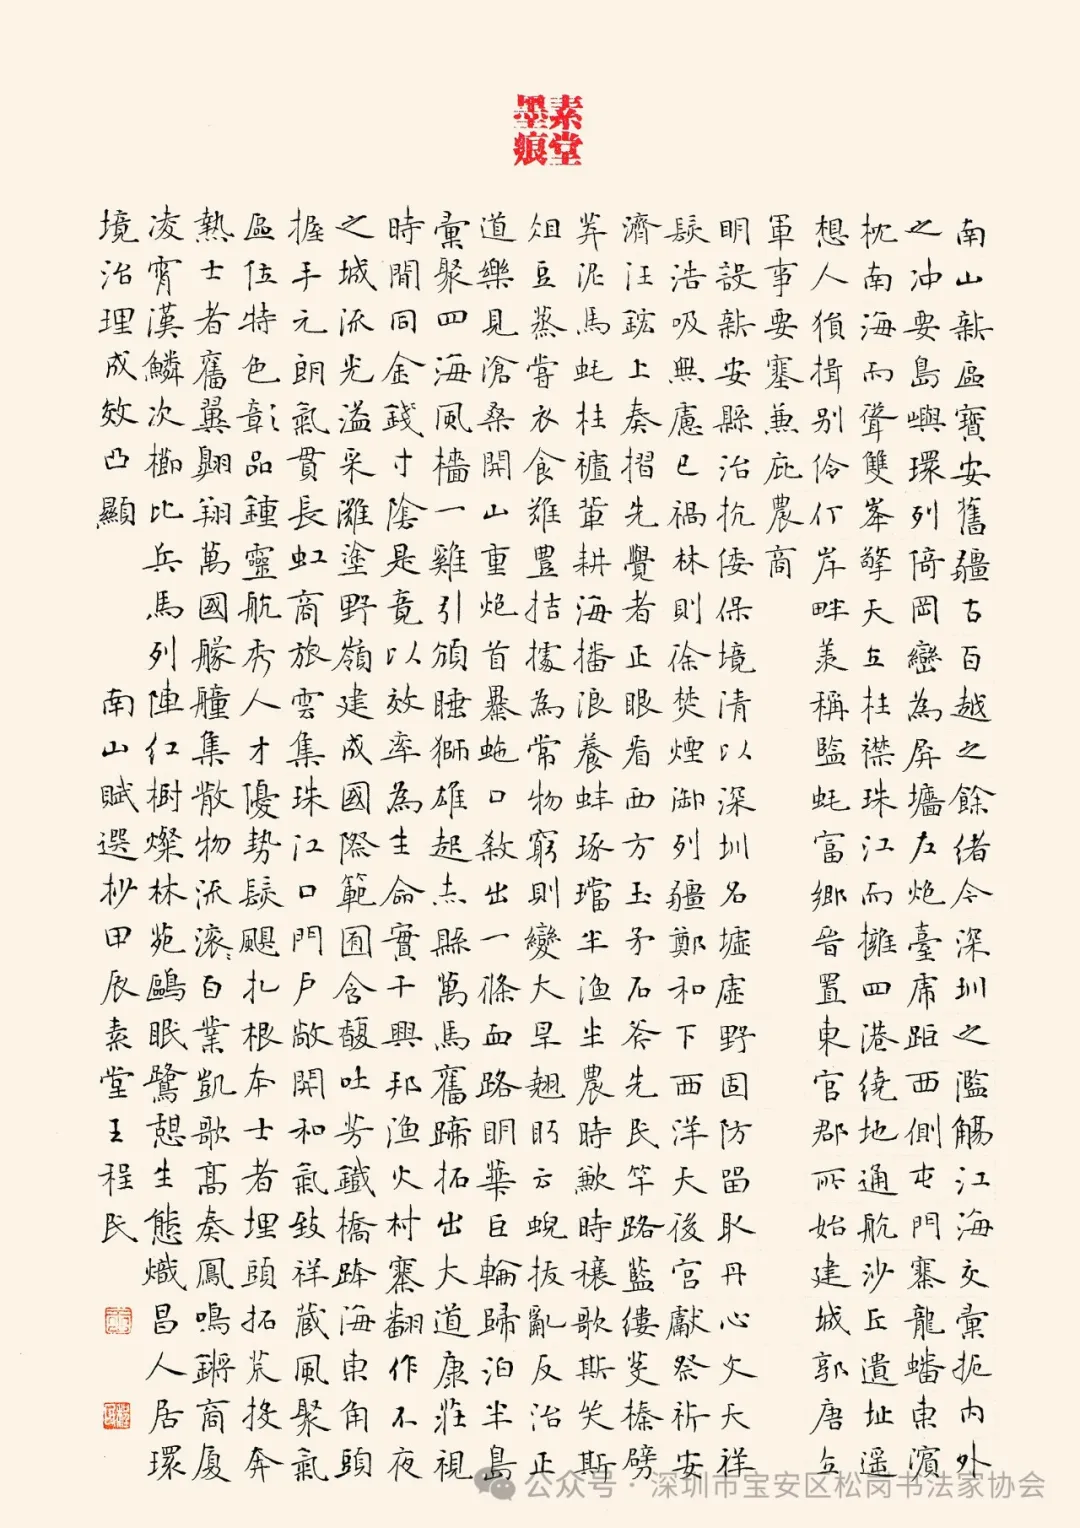 素堂
墨痕
南山新區寶安舊疆古百越之餘緒今深圳之濫觴江海交彙扼內外
之沖要島嶼環列倚岡巒為屏壩左炮臺虎距西側屯門寨龍蟠東濱
枕南海而聳雙峯擎天立柱襟珠江而擁四港繞地通航沙丘遺址遥
想人猿揖别伶仃岸畔羨稱盬蚝富鄉晉置東官郡所始建城郭唐立
軍事要塞兼庇農商
明設新安縣治抗倭保境清以深圳名墟虛野固防留取丹心文天祥
髮浩吸無慮已禍林則徐焚煙御列疆鄭和下西洋天後宮獻祭祈安
濟汪鋐上奏摺先覺者正眼看西方玉矛石斧先民竿路藍縷芟榛劈
莽泥馬蚝柱襤葷耕海播浪養蚌琢璫半渔半農時歉時穰歌斯笑斯
俎豆蒸嘗衣食雖豊拮據為常物窮則變大旱翹盼云蜺拔亂反治正
道樂見滄桑開山重炮首暴虵口殺出一條血路眀華巨輪歸泊半島
彙聚四海風檣一雞引頒睡獅雄起赤縣萬馬舊蹄拓出大道康莊視
時間同金錢寸陰是竟以效率為生命實干興邦渔火村寨翻作不夜
之城流光溢采灘塗野嶺建成國際範囿含馥吐芳鐵橋跨海東角頭
握手元朗氣貫長虹商旅雲集珠江口門戶敞開和氣致祥蔵風聚氣
區位特色彰品鍾靈航秀人才優勢髮颶扎根本士者埋頭拓荒投奔
熱士者舊翼翺翔萬國艨艟集散物流滾滾百業凱歌髙奏鳳鳴鏘商厦
凌霄漢鱗次櫛比兵馬列陣红樹燦林苑鷗眠鷺憩生態熾昌人居環
境治理成效凸顯
南山賦選抄甲辰素堂王程民
公众号·深圳市宝安区松岗书法家协会